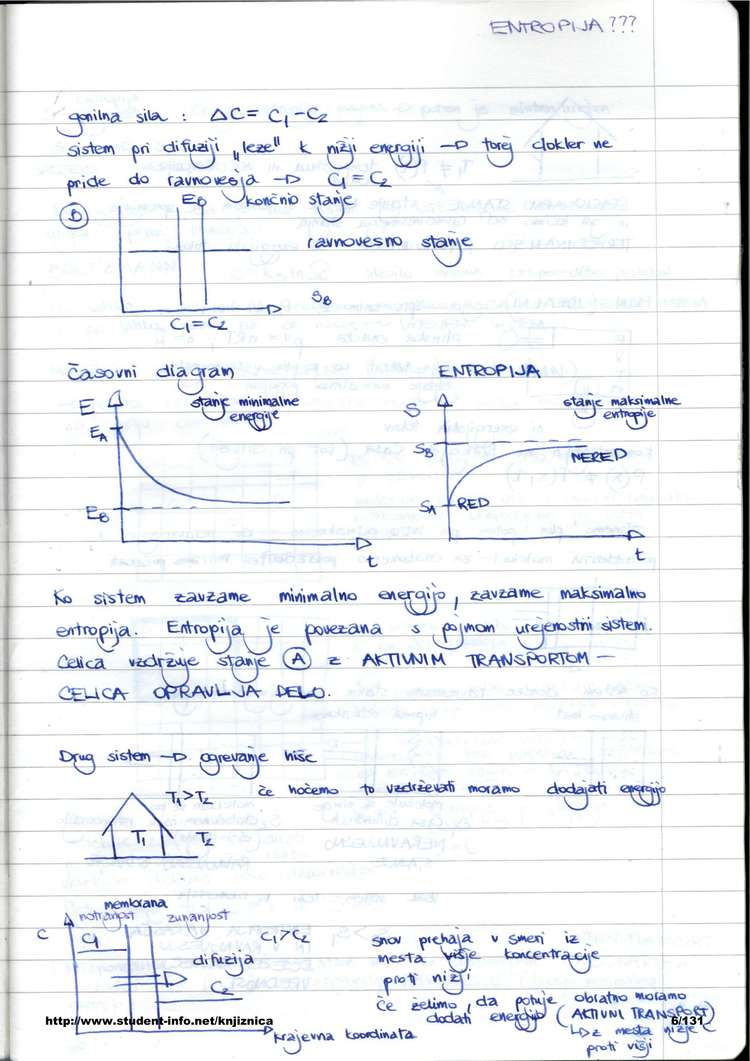 ENTROPIJA???
gonilna sila : ΔC = C₁ - C₂
sistem pri difuziji „leze" k nižji energiji → torej dokler ne
pride do ravnovesja → C₁ = C₂
B
E_B končno stanje
ravnovesno stanje
S_B
C₁ = C₂
časovni diagram
ENTROPIJA
E
stanje minimalne
energije
E_A
E_B
t
S
stanje maksimalne
entropije
S_B
NERED
S_A
RED
t
Ko sistem zavzame minimalno energijo, zavzame maksimalno
entropija. Entropija je povezana s pojmom urejenostni sistem.
Celica vzdržuje stanje A z AKTIVNIM TRANSPORTOM –
CELICA OPRAVLJA DELO.
Drug sistem → ogrevanje hiše
T₁ > T₂
če hočemo to vzdrževati moramo dodajati energijo
T₁
T₂
membrana
notranjost
zunanjost
C
C₁
C₁ > C₂
difuzija
C₂
krajevna koordinata
snov prehaja v smeri iz
mesta višje koncentracije
proti nižji
če želimo, da potuje obratno moramo
dodati energijo (AKTIVNI TRANSPORT)
↳ z mesta nižje
proti višji
http://www.student-info.net/knjiznica
6/131